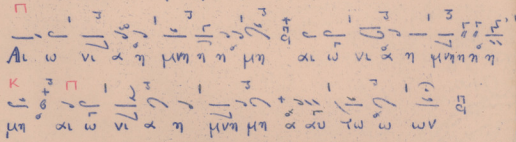 Π
Αι ω νι α η μνη η η μη αι ω νι α η μνη η η η
Κ Π
μη αι ω νι α η μνη μη α αυ τω ω ων